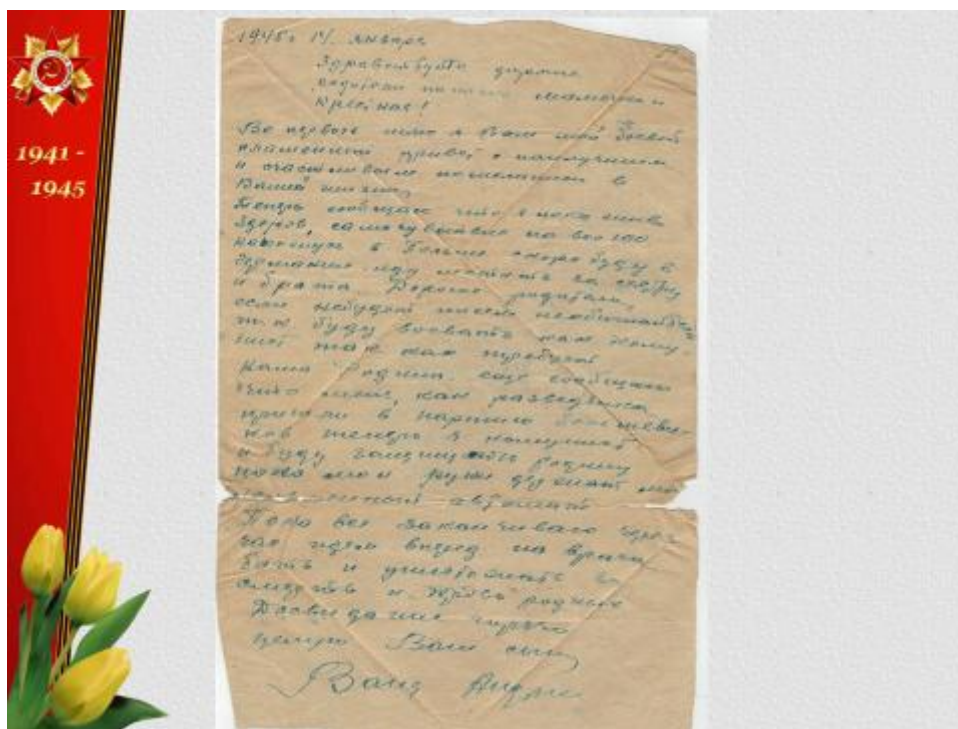 1941 -
1945
1945 г 14 января
Здравствуйте дорогие
родители мамочка и
Крёстная!
Во первых шлю я Вам свой Боевой
пламенный привет с наилучшими
и счастливыми пожеланиями в
Вашей жизни,
Теперь сообщаю что я пока жив
здоров, самочувствие на все сто
нахожусь в Польше скоро буду в
Германии иду мстить за сестру
и брата. Дорогие родители,
если небудет писем
т.к. буду воевать как
так как требует
наша Родина. еще сообщаю
что меня, как разведчика
приняли в партию Большеви-
ков теперь я коммунист
и буду защищать родину
пока мои руки держат
автомат
Пока все заканчиваю через
час идем вперед на врага
бить и уничтожать за
смерть и кровь родных
Досвидание крепко
целую Ваш сын
Ваш Андрей